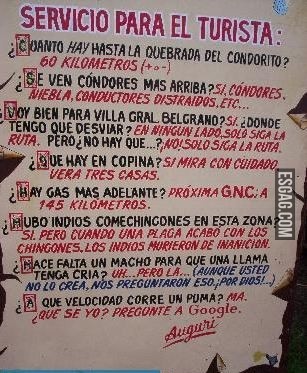 SERVICIO PARA EL TURISTA:
¿CUANTO HAY HASTA LA QUEBRADA DEL CONDORITO?
60 KILOMETROS (+o-)
¿SE VEN CÓNDORES MAS ARRIBA? SI, CONDORES,
NIEBLA, CONDUCTORES DISTRAIDOS, ETC...
¿VOY BIEN PARA VILLA GRAL. BELGRANO? SI. ¿DONDE
TENGO QUE DESVIAR? EN NINGUN LADO, SOLO SIGA LA
RUTA. PERO ¿NO HAY QUE...? ¡NO! SOLO SIGA LA RUTA.
¿QUE HAY EN COPINA? SI MIRA CON CUIDADO,
VERA TRES CASAS.
¿HAY GAS MAS ADELANTE? PRÓXIMA G.N.C: A
145 KILOMETROS.
¿HUBO INDIOS COMECHINGONES EN ESTA ZONA?
SI PERO CUANDO UNA PLAGA ACABO CON LOS
CHINGONES, LOS INDIOS MURIERON DE INANICION.
¿HACE FALTA UN MACHO PARA QUE UNA LLAMA
TENGA CRIA? UH... PERO LA... (AUNQUE USTED
NO LO CREA, NOS PREGUNTARON ESO, ¡POR DIOS!..)
¿A QUE VELOCIDAD CORRE UN PUMA? MA.
¿QUE SE YO? PREGUNTE A Google.
Auguri
ESGAG.COM